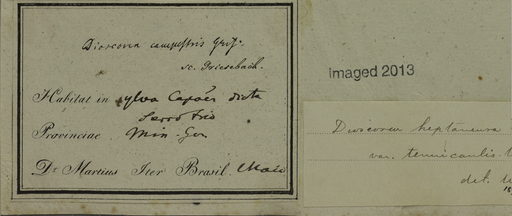 Dioscorea campestris Grisb.
sc. Griesebach.
Habitat in sylva Capões dicta
Serro frio
Provinciae Min. Ger
Dr. Martius Iter Brasil. Maio
Imaged 2013
Dioscorea heptaneura
var. tenuicaulis
det.